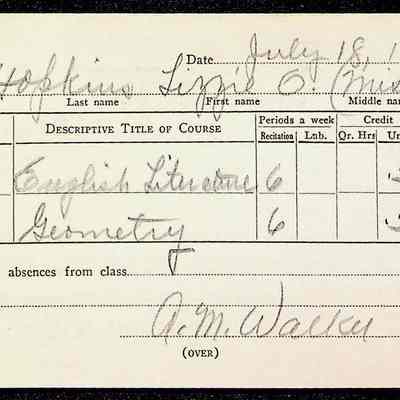 Date July 18, 1
Hopkins Lizzie O. (Mis
Last name First name Middle nam
DESCRIPTIVE TITLE OF COURSE Periods a week Credit
Recitation Lab. Qr. Hrs Un
English Literature 6
Geometry 6
absences from class
A. M. Walker
(OVER)